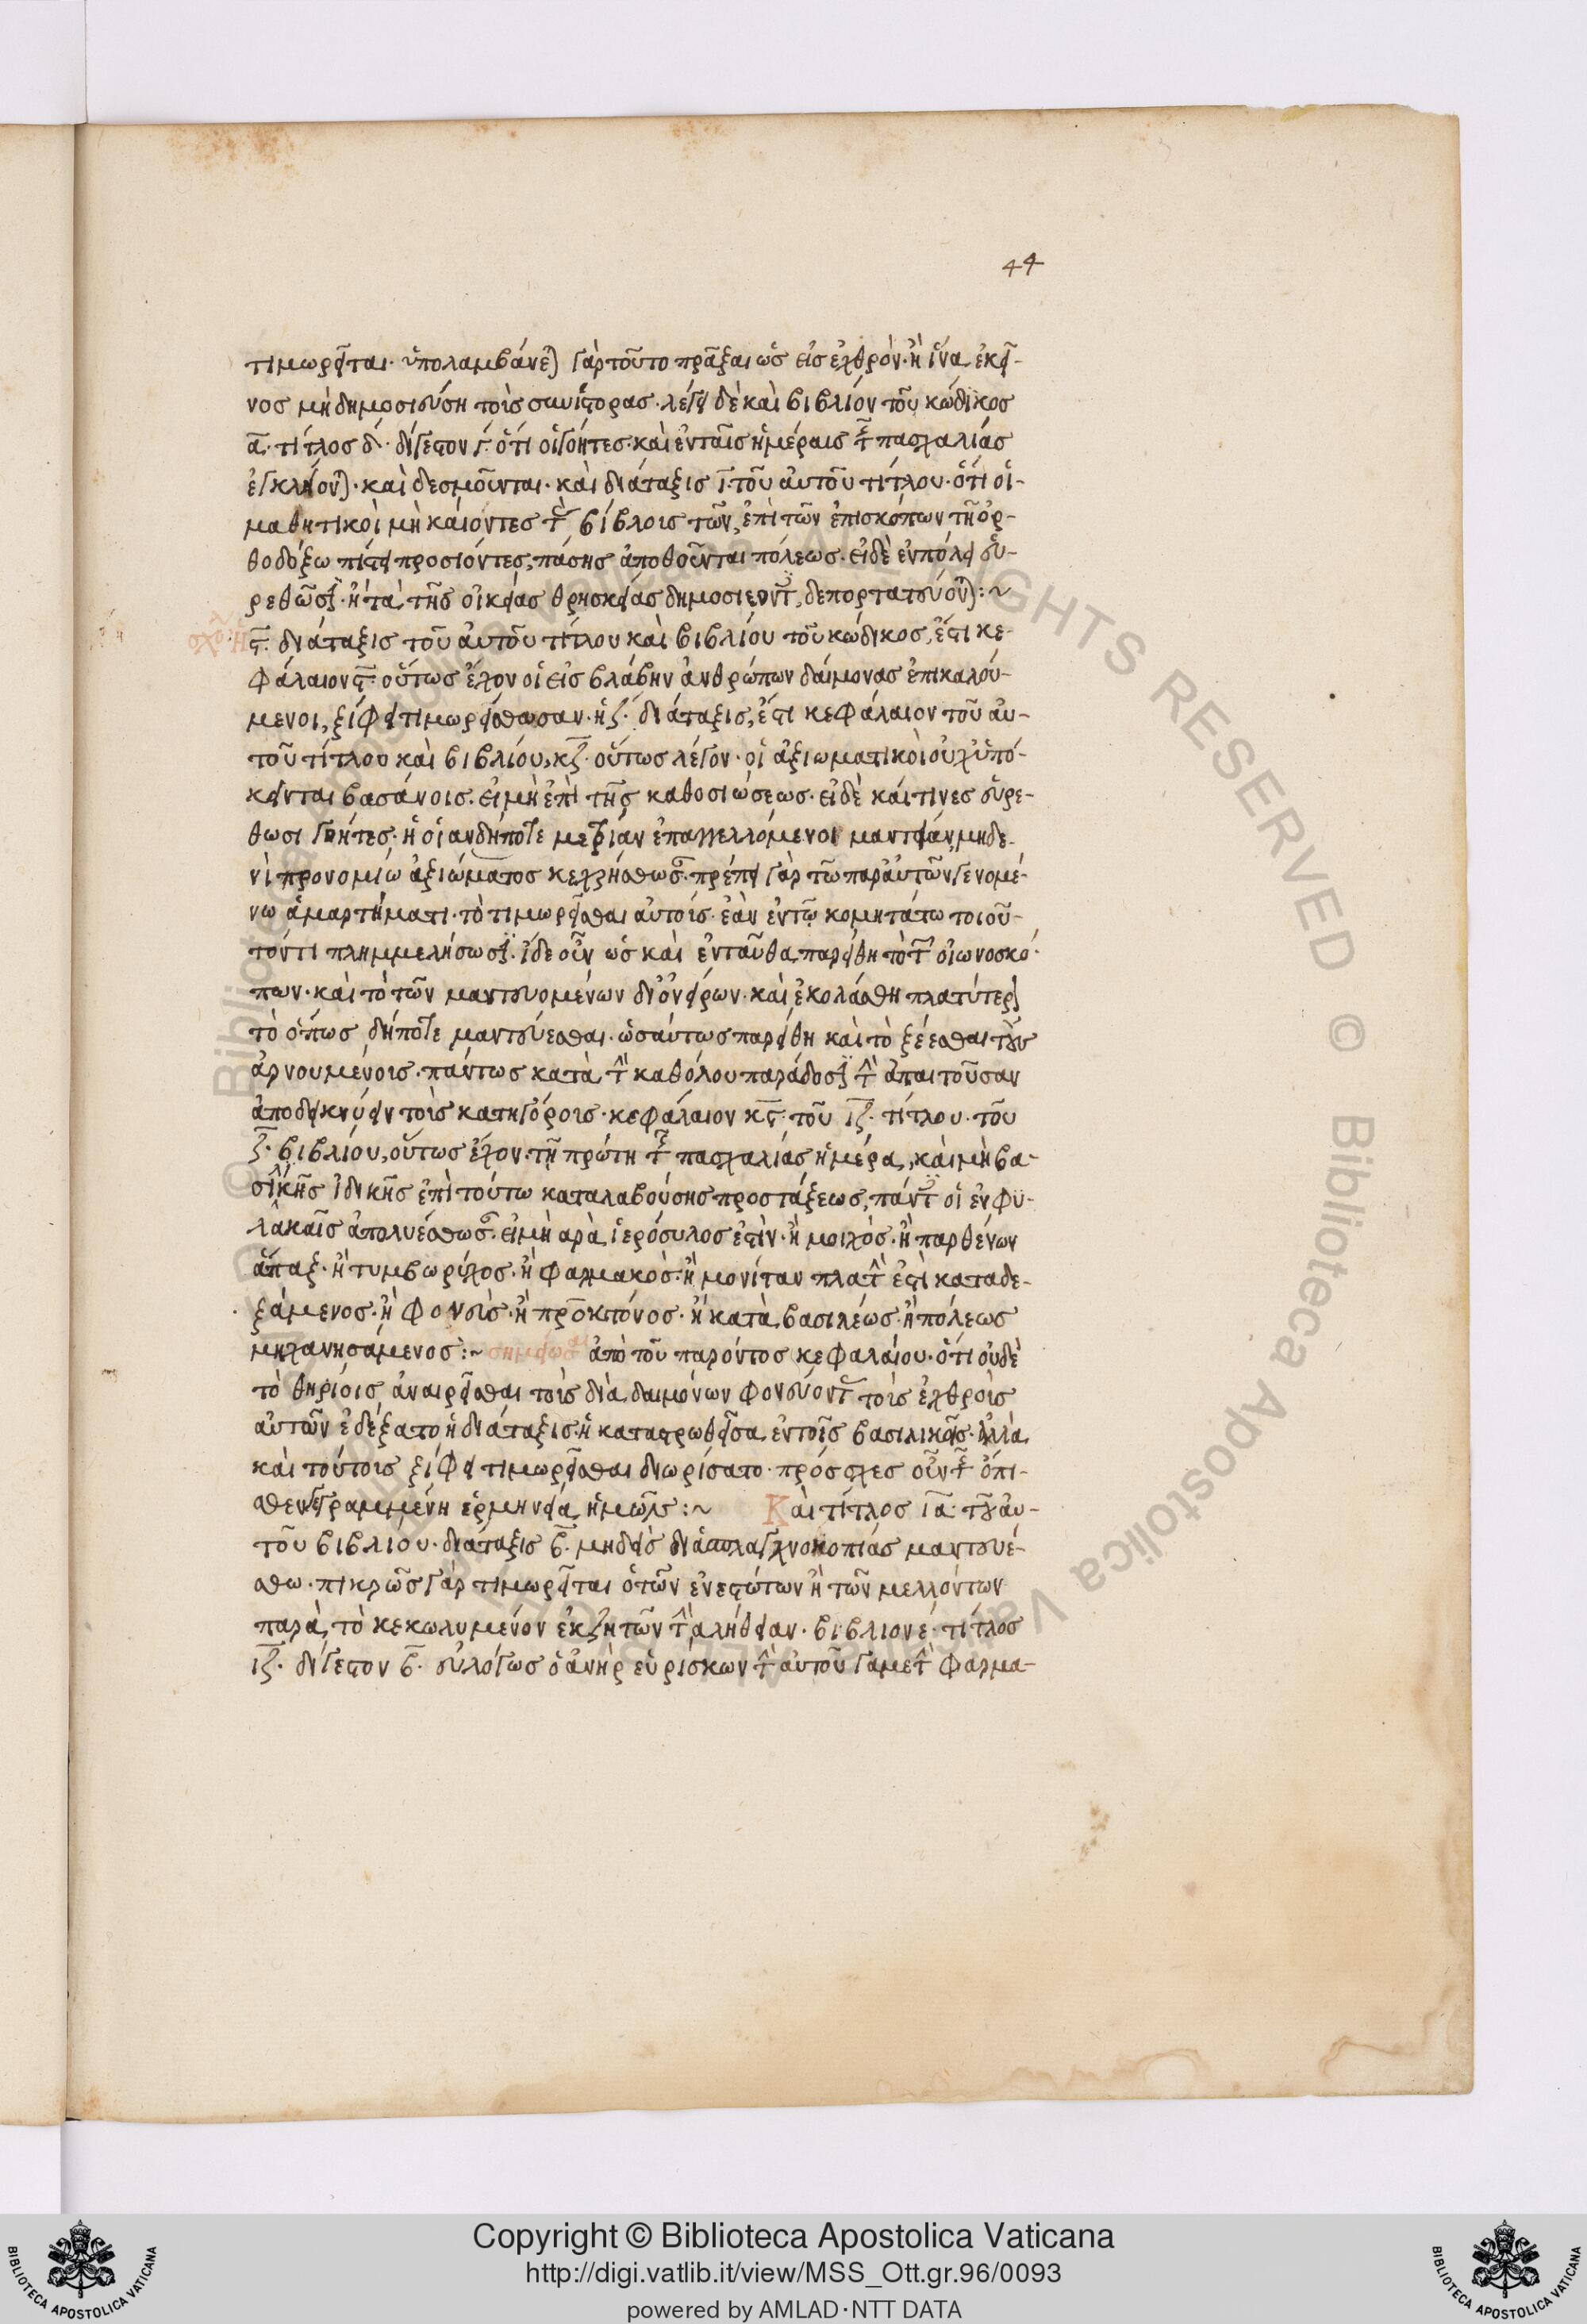 44
τιμωρεῖται· ὑπολαμβάνεται γὰρ τοῦτο πρᾶξαι ὡς εἰς ἐχθρόν· ἢ ἵνα ἐκεῖ-
νος μὴ δημοσιεύση τοὺς συνίστορας· λέγει δὲ καὶ βιβλίον τοῦ κώδικος
α· τίτλος δ· δίγεστον γ· ὅτι οἱ γόητες· καὶ ἐν ταῖς ἡμέραις τῆς πασχαλίας
ἐγκλείονται· καὶ δεσμοῦνται· καὶ διάταξις ι τοῦ αὐτοῦ τίτλου· ὅτι οἱ
μαθητικοὶ μὴ καίοντες τὰς βίβλους αὐτῶν, ἐπὶ τῶν ἐπισκόπων τῆ ὀρ-
θοδόξω πίστει προσιόντες, πάσης ἀπωθοῦνται πόλεως· εἰ δὲ ἐν πόλει εὑ-
ρεθῶσιν· ἢ τὰ τῆς οἰκείας θρησκείας δημοσιεύοντες, δεπορτατεύονται:~
σχό· η
ς· διάταξις τοῦ αὐτοῦ τίτλου καὶ βιβλίου τοῦ κώδικος, ἔστι κε-
φάλαιον ς· οὕτως ἔχον οἱ εἰς βλάβην ἀνθρώπων δαίμονας ἐπικαλού-
μενοι, ξίφει τιμωρείσθωσαν· ἡ ζ· διάταξις, ἔστι κεφάλαιον τοῦ αὐ-
τοῦ τίτλου καὶ βιβλίου, κζ· οὕτως λέγον· οἱ ἀξιωματικοὶ οὐχ ὑπό-
κεινται βασάνοις· εἰ μὴ ἐπὶ τῆς καθοσιώσεως· εἰ δὲ καί τινες εὑρε-
θῶσι γόητες· ἢ οἱανδήποτε μετριὰν ἐπαγγελλόμενοι μαντείαν, μηδε-
νὶ προνομίω ἀξιώματος κεχρήσθωσαν· πρέπει γὰρ τῶ παρ' αὐτῶν γενομέ-
νω ἁμαρτήματι· τὸ τιμωρεῖσθαι αὐτούς· ἐὰν ἐν τῶ κομητάτω τοιοῦ-
τόν τι πλημμελήσωσιν· ἴδε οὖν ὡς καὶ ἐνταῦθα παρείθη τὸ τῶν οἰωνοσκό-
πων· καὶ τὸ τῶν μαντευομένων δι' ὀνείρων· καὶ ἐκολάσθη πλατύτερον
τὸ ὅπως δήποτε μαντεύεσθαι· ὡσαύτως παρείθη καὶ τὸ ξέεσθαι τοὺς
ἀρνουμένους· πάντως κατὰ τὴν καθόλου παράδοσιν τὴν ἀπαιτοῦσαν
ἀποδεικνύειν τοὺς κατηγόρους· κεφάλαιον κς· τοῦ ιζ· τίτλου· τοῦ
ζ· βιβλίου, οὕτως ἔχον· τῆ πρώτη τῆς πασχαλίας ἡμέρα, καὶ μὴ βα-
σιλικῆς ἰδικῆς ἐπὶ τούτω καταλαβούσης προστάξεως, πάντες οἱ ἐν φυ-
λακαῖς ἀπολυέσθωσαν· εἰ μὴ ἄρα ἱερόσυλος ἐστίν· ἢ μοιχός· ἢ παρθένων
ἅρπαξ· ἢ τυμβωρύχος· ἢ φαρμακός· ἢ μονίταν πλαστὴν ἐστὶ καταδε-
ξάμενος· ἢ φονεύς· ἢ πατροκτόνος· ἢ κατὰ βασιλέως· ἢ πόλεως
μηχανησάμενος:~ σημείωσαι ἀπὸ τοῦ παρόντος κεφαλαίου· ὅτι οὐδὲ
τὸ θηρίοις ἀναιρεῖσθαι τοὺς διὰ δαιμόνων φονεύοντας τοὺς ἐχθροὺς
αὐτῶν ἐδέξατο ἡ διάταξις· ἡ καταστρωθεῖσα ἐν τοῖς βασιλικοῖς· ἀλλὰ
καὶ τούτους ξίφει τιμωρεῖσθαι διωρίσατο· πρόσσχες οὖν τῆ ὄπι-
σθεν γεγραμμένη ἑρμηνεία ἡμῶν:~ Καὶ τίτλος ια· τοῦ αὐ-
τοῦ βιβλίου· διάταξις β· μηδεὶς διὰ σπλαγχνοσκοπίας μαντευέ-
σθω· πικρῶς γὰρ τιμωρεῖται ὁ τῶν ἐνεστώτων ἢ τῶν μελλόντων
παρὰ τὸ κεκωλυμένον ἐκζητῶν τὴν ἀλήθειαν· βιβλίον ε· τίτλος
ιζ· δίγεστον β· εὐλόγως ὁ ἀνὴρ εὑρίσκων τὴν αὐτοῦ γαμετὴν φαρμα-
Copyright © Biblioteca Apostolica Vaticana
http://digi.vatlib.it/view/MSS_Ott.gr.96/0093
powered by AMLAD·NTT DATA